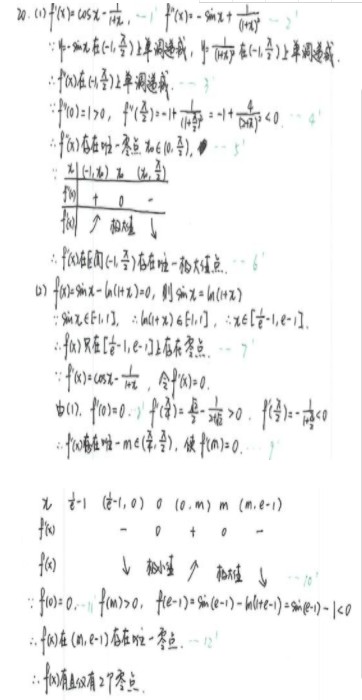 20. (1) f'(x)=cosx-1/(1+x), --1' f''(x)=-sinx+1/(1+x)² --2'
∵ y=-sinx在(-1,π/2)上单调递减, y=1/(1+x)²在(-1,π/2)上单调递减.
∴ f''(x)在(-1,π/2)上单调递减. --3'
∵ f''(0)=1>0, f''(π/2)=-1+1/(1+π/2)²=-1+4/(2+π)²<0. --4'
∴ f''(x)存在唯一零点x₀∈(0,π/2), --5'
∵ x (-1,x₀) x₀ (x₀,π/2)
f''(x) + 0 -
f'(x) ↗ 极大值 ↘
∴ f'(x)在区间(-1,π/2)存在唯一极大值点. --6'
(2) f(x)=sinx-ln(1+x)=0, 则sinx=ln(1+x)
∵ sinx∈[-1,1], ∴ ln(1+x)∈[-1,1], ∴ x∈[1/e-1,e-1].
∴ f(x)只在[1/e-1,e-1]上存在零点. --7'
∵ f'(x)=cosx-1/(1+x), 令f'(x)=0.
由(1), f'(0)=0
∴ f'(x)存在唯一m∈(π/4,π/2), 使f'(m)=0. --9'
x 1/e-1 (1/e-1,0) 0 (0,m) m (m,e-1)
f'(x) - 0 + 0 -
f(x) ↓ 极小值 ↗ 极大值 ↓ --10'
∵ f(0)=0, --11' f(m)>0, f(e-1)=sin(e-1)-ln(1+e-1)=sin(e-1)-1<0
∴ f(x)在(m,e-1)存在唯一零点. --12'
∴ f(x)有且仅有2个零点.